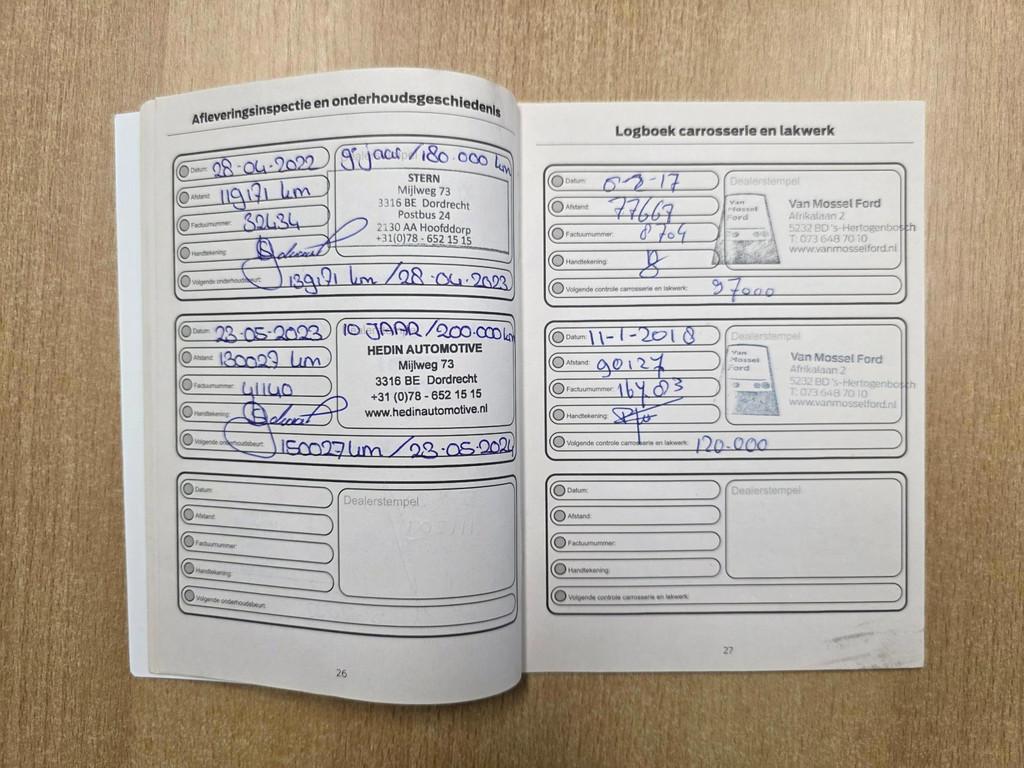 Afleveringsinspectie en onderhoudsgeschiedenis
Datum: 28-04-2022
Afstand: 119171 km
Factuurnummer: 32434
Handtekening:
9e jaar/180.000 km
STERN
Mijlweg 73
3316 BE Dordrecht
Postbus 24
2130 AA Hoofddorp
+31(0)78 - 652 15 15
Volgende onderhoudsbeurt: 139171 km /28-04-2023
Datum: 23-05-2023
Afstand: 130027 km
Factuurnummer: 41140
Handtekening:
10 JAAR/200.000km
HEDIN AUTOMOTIVE
Mijlweg 73
3316 BE Dordrecht
+31 (0)78 - 652 15 15
www.hedinautomotive.nl
Volgende onderhoudsbeurt: 150027km /23-05-2024
Datum:
Afstand:
Factuurnummer:
Handtekening:
Dealerstempel
Volgende onderhoudsbeurt:
26
Logboek carrosserie en lakwerk
Datum: 8-17
Afstand: 77667
Factuurnummer: 8704
Handtekening:
Dealerstempel
Van Mossel Ford
Van Mossel Ford
Afrikalaan 2
5232 BD 's-Hertogenbosch
T: 073 648 70 10
www.vanmosselford.nl
Volgende controle carrosserie en lakwerk: 97000
Datum: 11-1-2018
Afstand: 90127
Factuurnummer: 16483
Handtekening:
Dealerstempel
Van Mossel Ford
Van Mossel Ford
Afrikalaan 2
5232 BD 's-Hertogenbosch
T: 073 648 70 10
www.vanmosselford.nl
Volgende controle carrosserie en lakwerk: 120.000
Datum:
Afstand:
Factuurnummer:
Handtekening:
Dealerstempel
Volgende controle carrosserie en lakwerk:
27